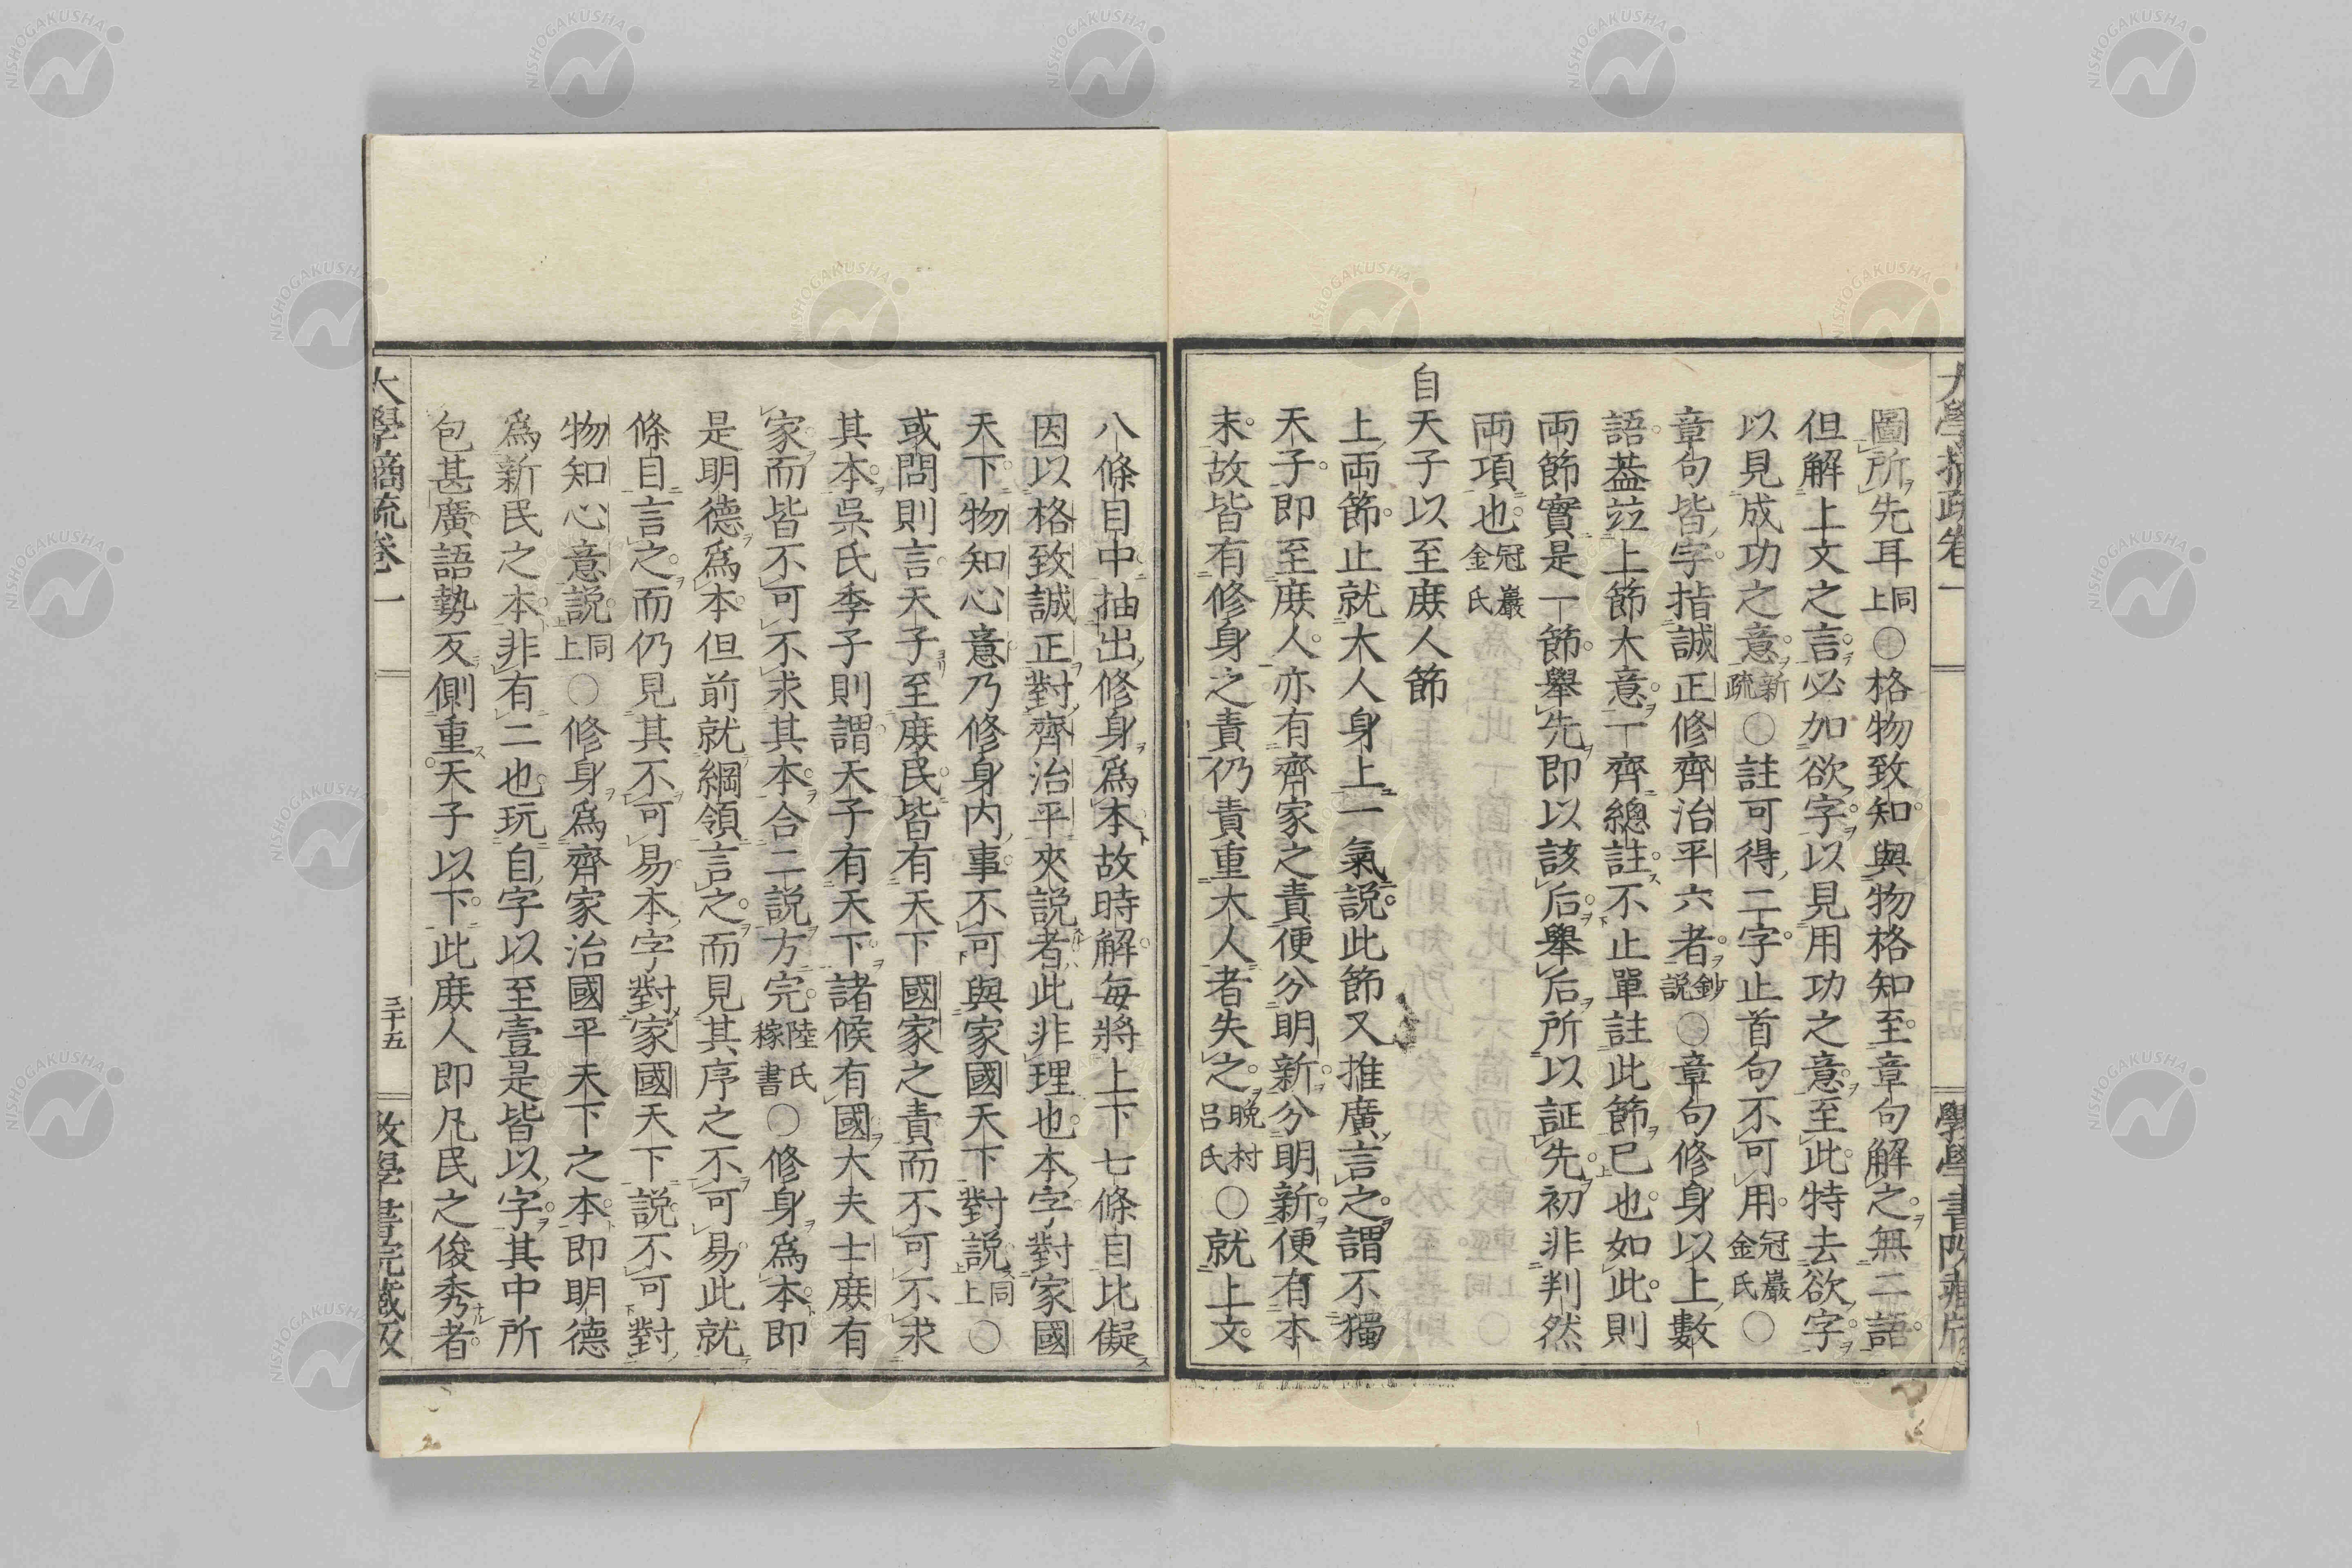 圖所先耳同上○格物致知與物格知至章句解之無二語
但解上文之言必加欲字以見用功之意至此特去欲字
以見成功之意新疏○註可得二字止首句不可用冠巖金氏○
章句皆字指誠正修齊治平六者鈔說○章句修身以上數
語葢竝上節大意一齊總註不止單註此節已也如此則
兩節實是一節舉先即以該后舉后所以証先初非判然
兩項也冠巖金氏
自天子以至庻人節
上兩節止就大人身上一氣說此節又推廣言之謂不獨
天子即至庻人亦有齊家之責便分明新分明新便有本
末故皆有修身之責仍責重大人者失之晚村呂氏○就上文
八條目中抽出修身爲本故時解每將上下七條目比儗
因以格致誠正對齊治平夾說者此非理也本字對家國
天下物知心意乃修身内事不可與家國天下對說同上○
或問則言天子至庻民皆有天下國家之責而不可不求
其本吳氏季子則謂天子有天下諸候有國大夫士庻有
家而皆不可不求其本合二說方完陸氏稼書○修身爲本即
是明德爲本但前就綱領言之而見其序之不可易此就
條目言之而仍見其不可易本字對家國天下說不可對
物知心意說同上○修身爲齊家治國平天下之本即明德
爲新民之本非有二也玩自字以至壹是皆以字其中所
包甚廣語勢反側重天子以下此庻人即凡民之俊秀者
大學摘疏卷一
三十五
敩學書院藏版